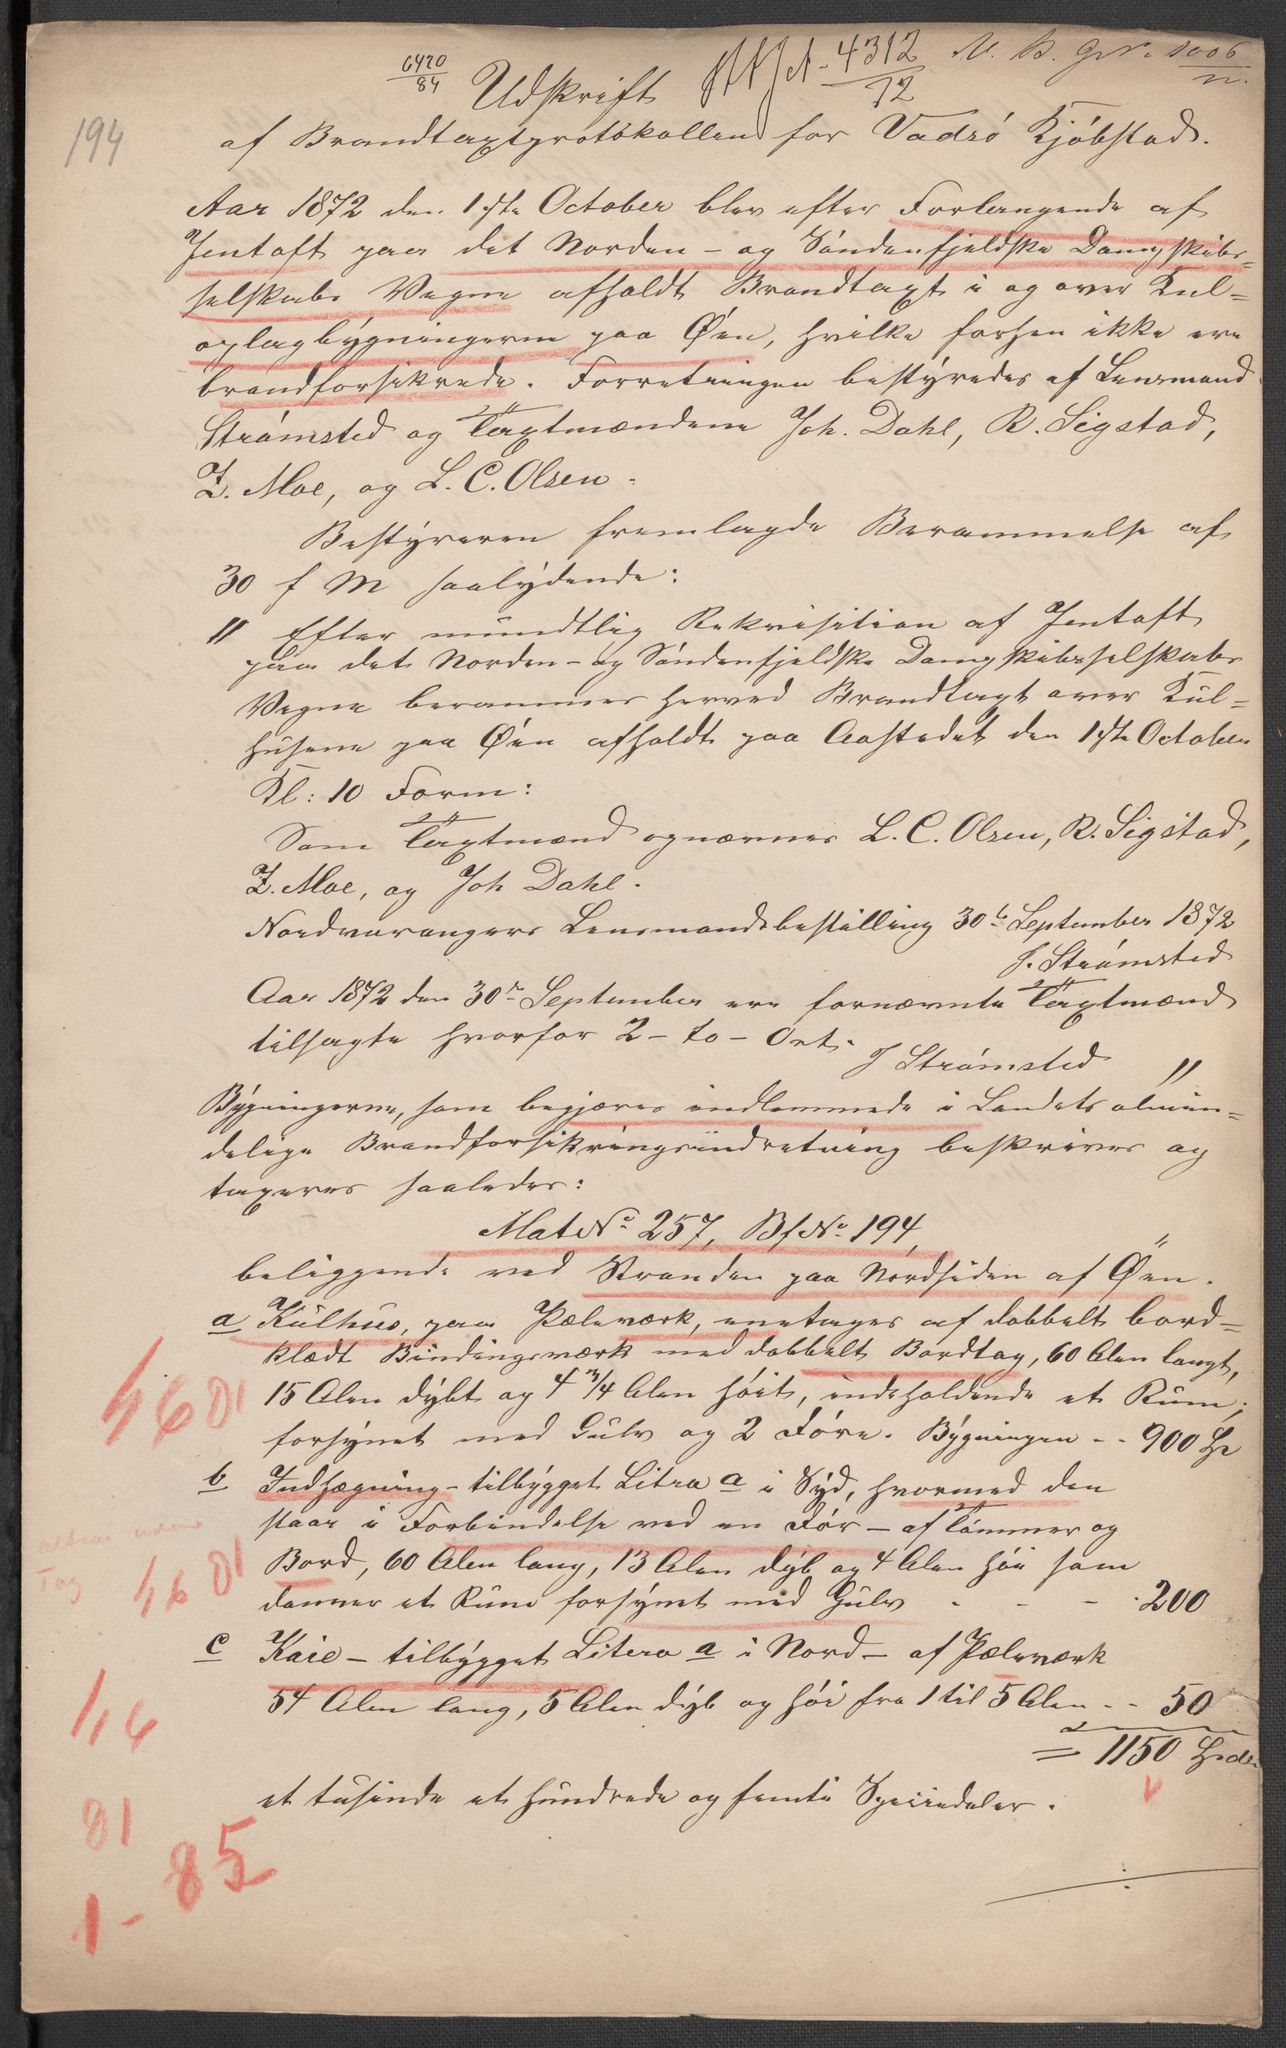 6420
84
4312
72
1006
194
Udskrift
af Brandtaxtprotokollen for Vadsö Kjöbstad.
Aar 1872 den 1ste October blev efter Forlangende af
Jentoft paa det Norden- og Söndenfjeldske Dampskibs-
selskabs Vegne afholdt Brandtaxt i og over Kul-
oplagbygningerne paa Øen, hvilke forhen ikke ere
brandforsikrede. Forretningen bestyredes af Lensmand
Strömsted og Taxtmændene Joh. Dahl, R. Sigstad,
Z. Moe, og L. C. Olsen.
Bestyreren fremlagde Berammelse af
30 f M saalydende:
" Efter mundtlig Rekvisition af Jentoft
paa det Norden- og Söndenfjeldske Dampskibsselskabs
Vegne berammes herved Brandtaxt over Kul-
husene paa Øen afholdt paa Aastedet den 1ste October
Kl: 10 Form:
Som Taxtmænd opnævnes L. C. Olsen, R. Sigstad,
Z. Moe, og Joh Dahl.
Nordvarangers Lensmandsbestilling 30te September 1872
J. Strömsted
Aar 1872 den 30te September ere fornævnte Taxtmænd
tilsagte hvorfor 2 - to - Ort.
J Strömsted "
Bygningerne, som begjæres indlemmede i Landets almin-
delige Brandforsikringsindretning beskrives og
taxeres saaledes:
Mat No 257, Bf No 194,
beliggende ved Stranden paa Nordsiden af Øen.
a Kulhus, paa Pæleværk, eenetages af dobbelt bord-
klædt Bindingsværk med dobbelt Bordtag, 60 Alen langt,
15 Alen dybt og 4 3/4 Alen höit, indeholdende et Rum;
forsynet med Gulv og 2 Döre. Bygningen - - 900 Sp
b Indhægning - tilbygget Litra a i Syd, hvormed den
staar i Forbindelse ved en Dör - af Tömmer og
Bord, 60 Alen lang, 13 Alen dyb og 4 Alen höi som
danner et Rum forsynet med Gulv - - - 200
c Kaie - tilbygget Litera a i Nord - af Pæleværk
54 Alen lang, 5 Alen dyb og höi fra 1 til 5 Alen - - 50
= 1150 Spdlr
et tusinde et hundrede og femti Speciedaler.
Tag
81
1 - 85